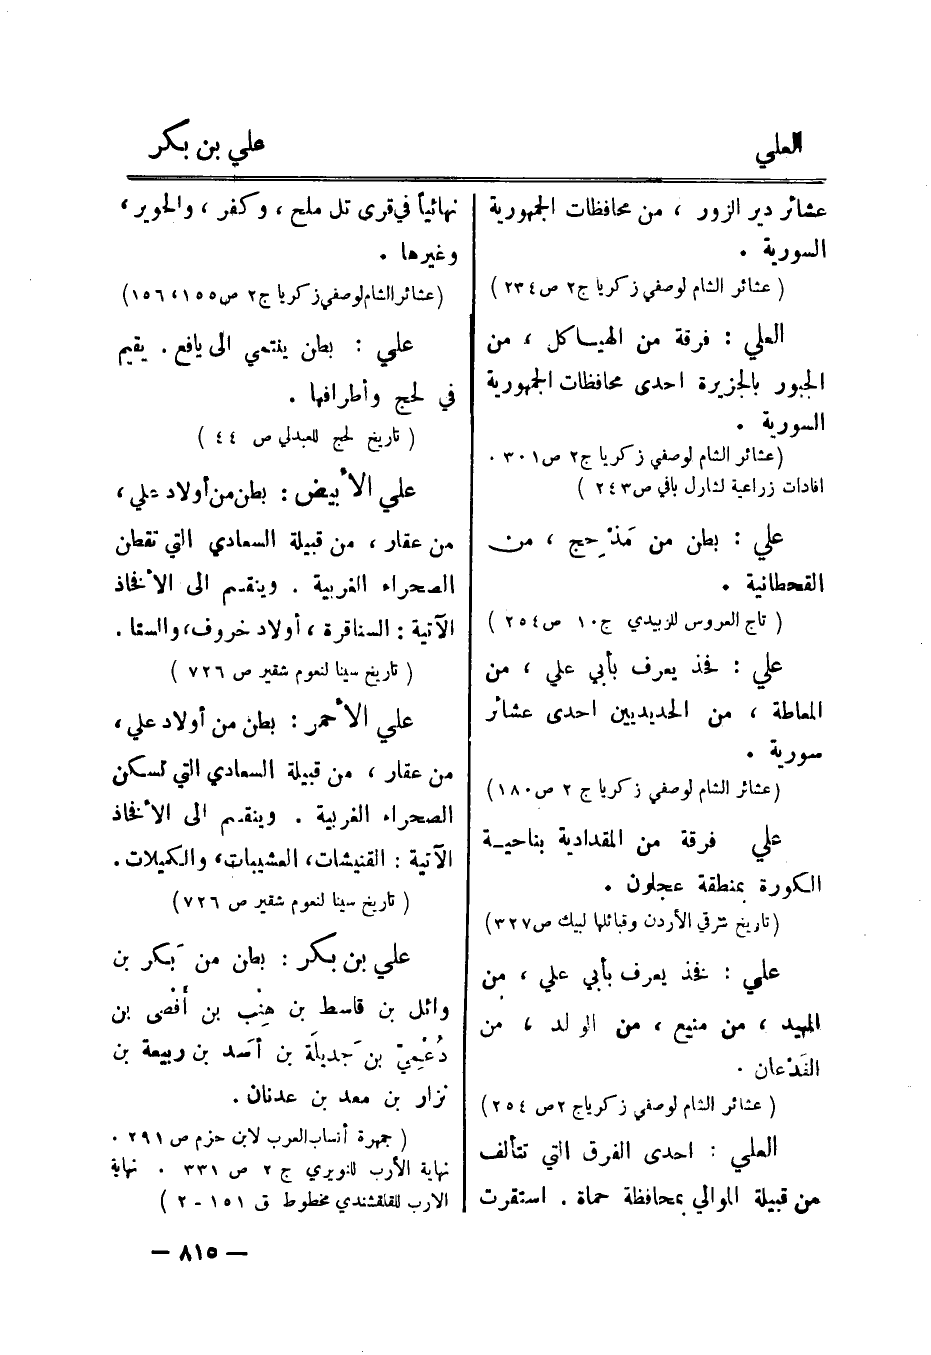 العلي
علي بن بكر
عشائر دير الزور ، من محافظات الجمهورية
السورية .
( عشائر الشام لوصفي زكريا ج٢ ص٢٣٤ )
العلي : فرقة من الهياكل ، من
الجبور بالجزيرة احدى محافظات الجمهورية
السورية .
(عشائر الشام لوصفي زكريا ج٢ ص٣٠١ .
افادات زراعية لشارل بافي ص٢٤٣ )
علي : بطن من مَذْحِج ، من
القحطانية .
( تاج العروس للزبيدي ج١٠ ص٢٥٤ )
علي : فخذ يعرف بأبي علي ، من
المعاطة ، من الحديديين احدى عشائر
سورية .
(عشائر الشام لوصفي زكريا ج ٢ ص١٨٠)
علي فرقة من المقدادية بناحية
الكورة بمنطقة عجلون .
(تاريخ شرقي الأردن وقبائلها لبيك ص٣٢٧)
علي : فخذ يعرف بأبي علي ، من
المهيد ، من منيع ، من الولد ، من
الفَدْعان .
( عشائر الشام لوصفي زكرياج ٢ص ٢٥٤)
العلي : احدى الفرق التي تتألف
من قبيلة الموالي بمحافظة حماة . استقرت
نهائياً في قرى تل ملح ، وكفر ، والحوير ،
وغيرها .
(عشائر الشام لوصفي زكريا ج٢ ص١٥٥، ١٥٦)
علي : بطن ينتمي الى يافع . يقيم
في لحج وأطرافها .
( تاريخ لحج للعبدلي ص ٤٤ )
علي الأبيض : بطن من أولاد علي ،
من عقار ، من قبيلة السعادي التي تقطن
الصحراء الغربية . وينقسم الى الأفخاذ
الآتية : السناقرة ، أولاد خروف، والسنا .
( تاريخ سينا لنعوم شقير ص ٧٢٦ )
علي الأحمر : بطن من أولاد علي ،
من عقار ، من قبيلة السعادي التي تسكن
الصحراء الغربية . وينقسم الى الأفخاذ
الآتية : القنيشات، العشيبات، والكيلات .
( تاريخ سينا لنعوم شقير ص ٧٢٦)
علي بن بكر : بطن من بَكر بن
وائل بن قاسط بن هِنْب بن أَفْصى بن
دُعْمِيّ بن جَديلَة بن أسَد بن ربيعة بن
نزار بن معد بن عدنان .
( جمهرة أنساب العرب لابن حزم ص ٢٩١ .
نهاية الأرب للنويري ج ٢ ص ٣٣١ . نهاية
الارب للقلقشندي مخطوط ق ١٥١ - ٢ )
— ٨١٥ —